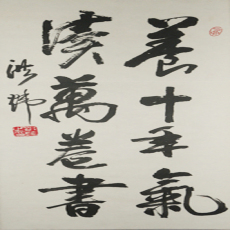 養十年氣
讀萬卷書
洪瑞